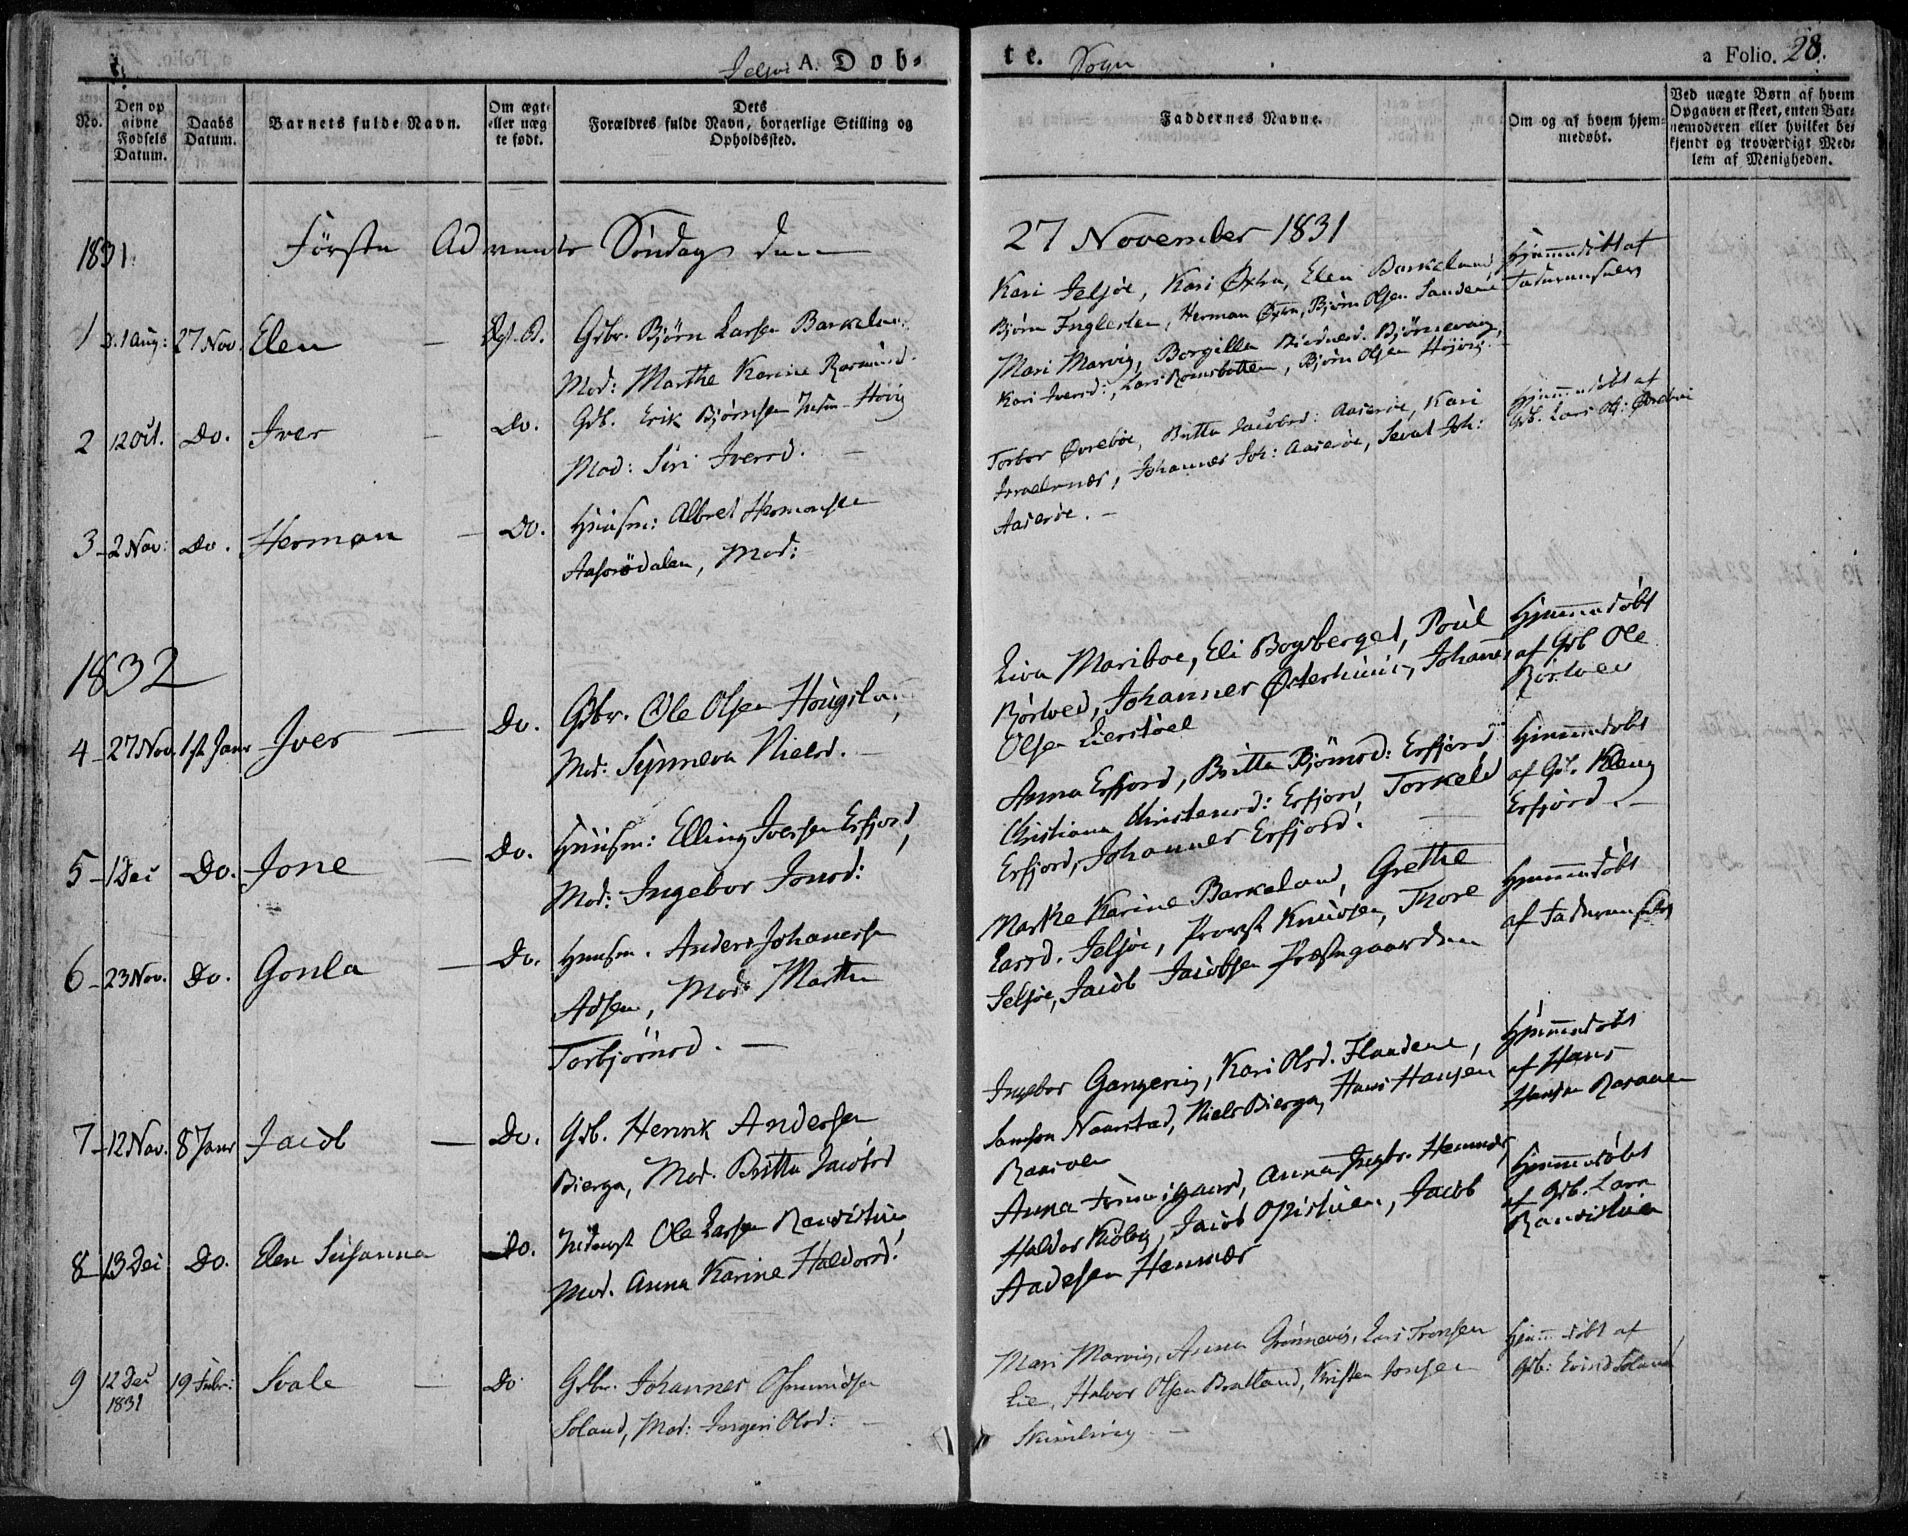 Jelsøe A. Døb-
te. Sogn
a Folio. 28.
No.
Den op
givne
Fødsels
Datum.
Daabs
Datum.
Barnets fulde Navn.
Om ægte
eller uæg
te født.
Dets
Forældres fulde Navn, borgerlige Stilling og
Opholdssted.
Faddernes Navne.
Om og af hvem hjem-
medøbt.
Ved uægte Børn af hvem
Opgaven er skeet, enten Bar-
nemoderen eller hvilket be-
kjendt og troværdigt Med-
lem af Menigheden.
1831. Første Advents Søndag den 27 November 1831
1 d. 1 Aug: 27 Nov. Elen — Ægt. B.
Gdbr. Bjørn Larsen Barkeland
Mod: Marthe Karine Rasmusd.
Kari Jelsøe, Kari Østra, Elen Barkeland,
Bjørn Inglesten, Herman Østra, Bjørn Olsen Sandene
Mari Marvig, Borgilla Biednesd. Bjørnevaag,
Kari Iversd:, Lars Romsbotten, Bjørn Olsen Høivig. —
Hjemmedøbt af
Faderen selv
2 12 Oct. Do. Iver — Do.
Gdb. Erik Bjørnsen Høivig
Mod: Siri Iversd. —
Torbor Øvrebøe, Britta Jacobsd: Aaserøe, Kari
Johannes Joh: Aaserøe, Sevat Joh:
Aaserøe. —
Hjemmedøbt af
Gdb. Lars Ols: Øvrebøe
3 2 Nov: Do. Herman — Do.
Huusm: Albret Hermansen
Aasrødalen, Mod:
1832
4 27 Nov. 1ste Janr Iver — Do.
Gdbr. Ole Olsen Hougsland,
Mod: Synneva Nielsd. —
Liva Mariboe, Eli Bogsberget, Poul
Rørtved, Johannes Østerhuus, Johans
Olsen Lierstøel
Hjemmedøbt
af Gdb Ole
Rørtved
5 1 Dec Do. Jone — Do.
Huusm: Elling Iversen Erfjord,
Mod: Ingebor Jonsd:
Anna Erfjord, Britta Bjørnsd: Erfjord
Christiana Christensd: Erfjord, Torkeld
Erfjord, Johannes Erfjord. —
Hjemmedøbt
af Gdb. Kleng
Erfjord. —
6 23 Nov. Do. Gonla — Do.
Huusm. Anders Johanesen
Adsen, Mod: Marthe
Torbjørnsd. —
Marthe Karine Barkeland, Grethe
Larsd. Jelsøe, Provst Knudsen, Thore
Jelsøe, Jacob Jacobsen Præstegaarden
Hjemmedøbt
af Faderen selv
7 12 Nov. 8 Janr Jacob — Do.
Gdb. Henrik Andersen
Bierga, Mod. Britta Jacobsd
Ingebor Kari Olsd. Flaadene,
Samson Naarstad, Niels Bierga, Hans Hansen
Raasven
Hjemmedøbt
af Hans
Hansen
8 13 Dec Do. Elen Susanna — Do.
Ole Larsen
Mod. Anna Karine Haldorsd.
Anna Anna Hennæs,
Haldor Jacob Jacob
Aadesen Hennæs
Hjemmedøbt
af Gdb. Lars
9 12 Dec
1831 19 Febr: Svale — Do
Gdbr. Johannes Osmundsen
Soland, Mod: Olsd: —
Mari Marvig, Anna Grønnevig, Lars Tronsen
Lie, Halvor Olsen Bratland, Kristen Jonsen
—
Hjemmedøbt af
Gdb: Eivind Soland